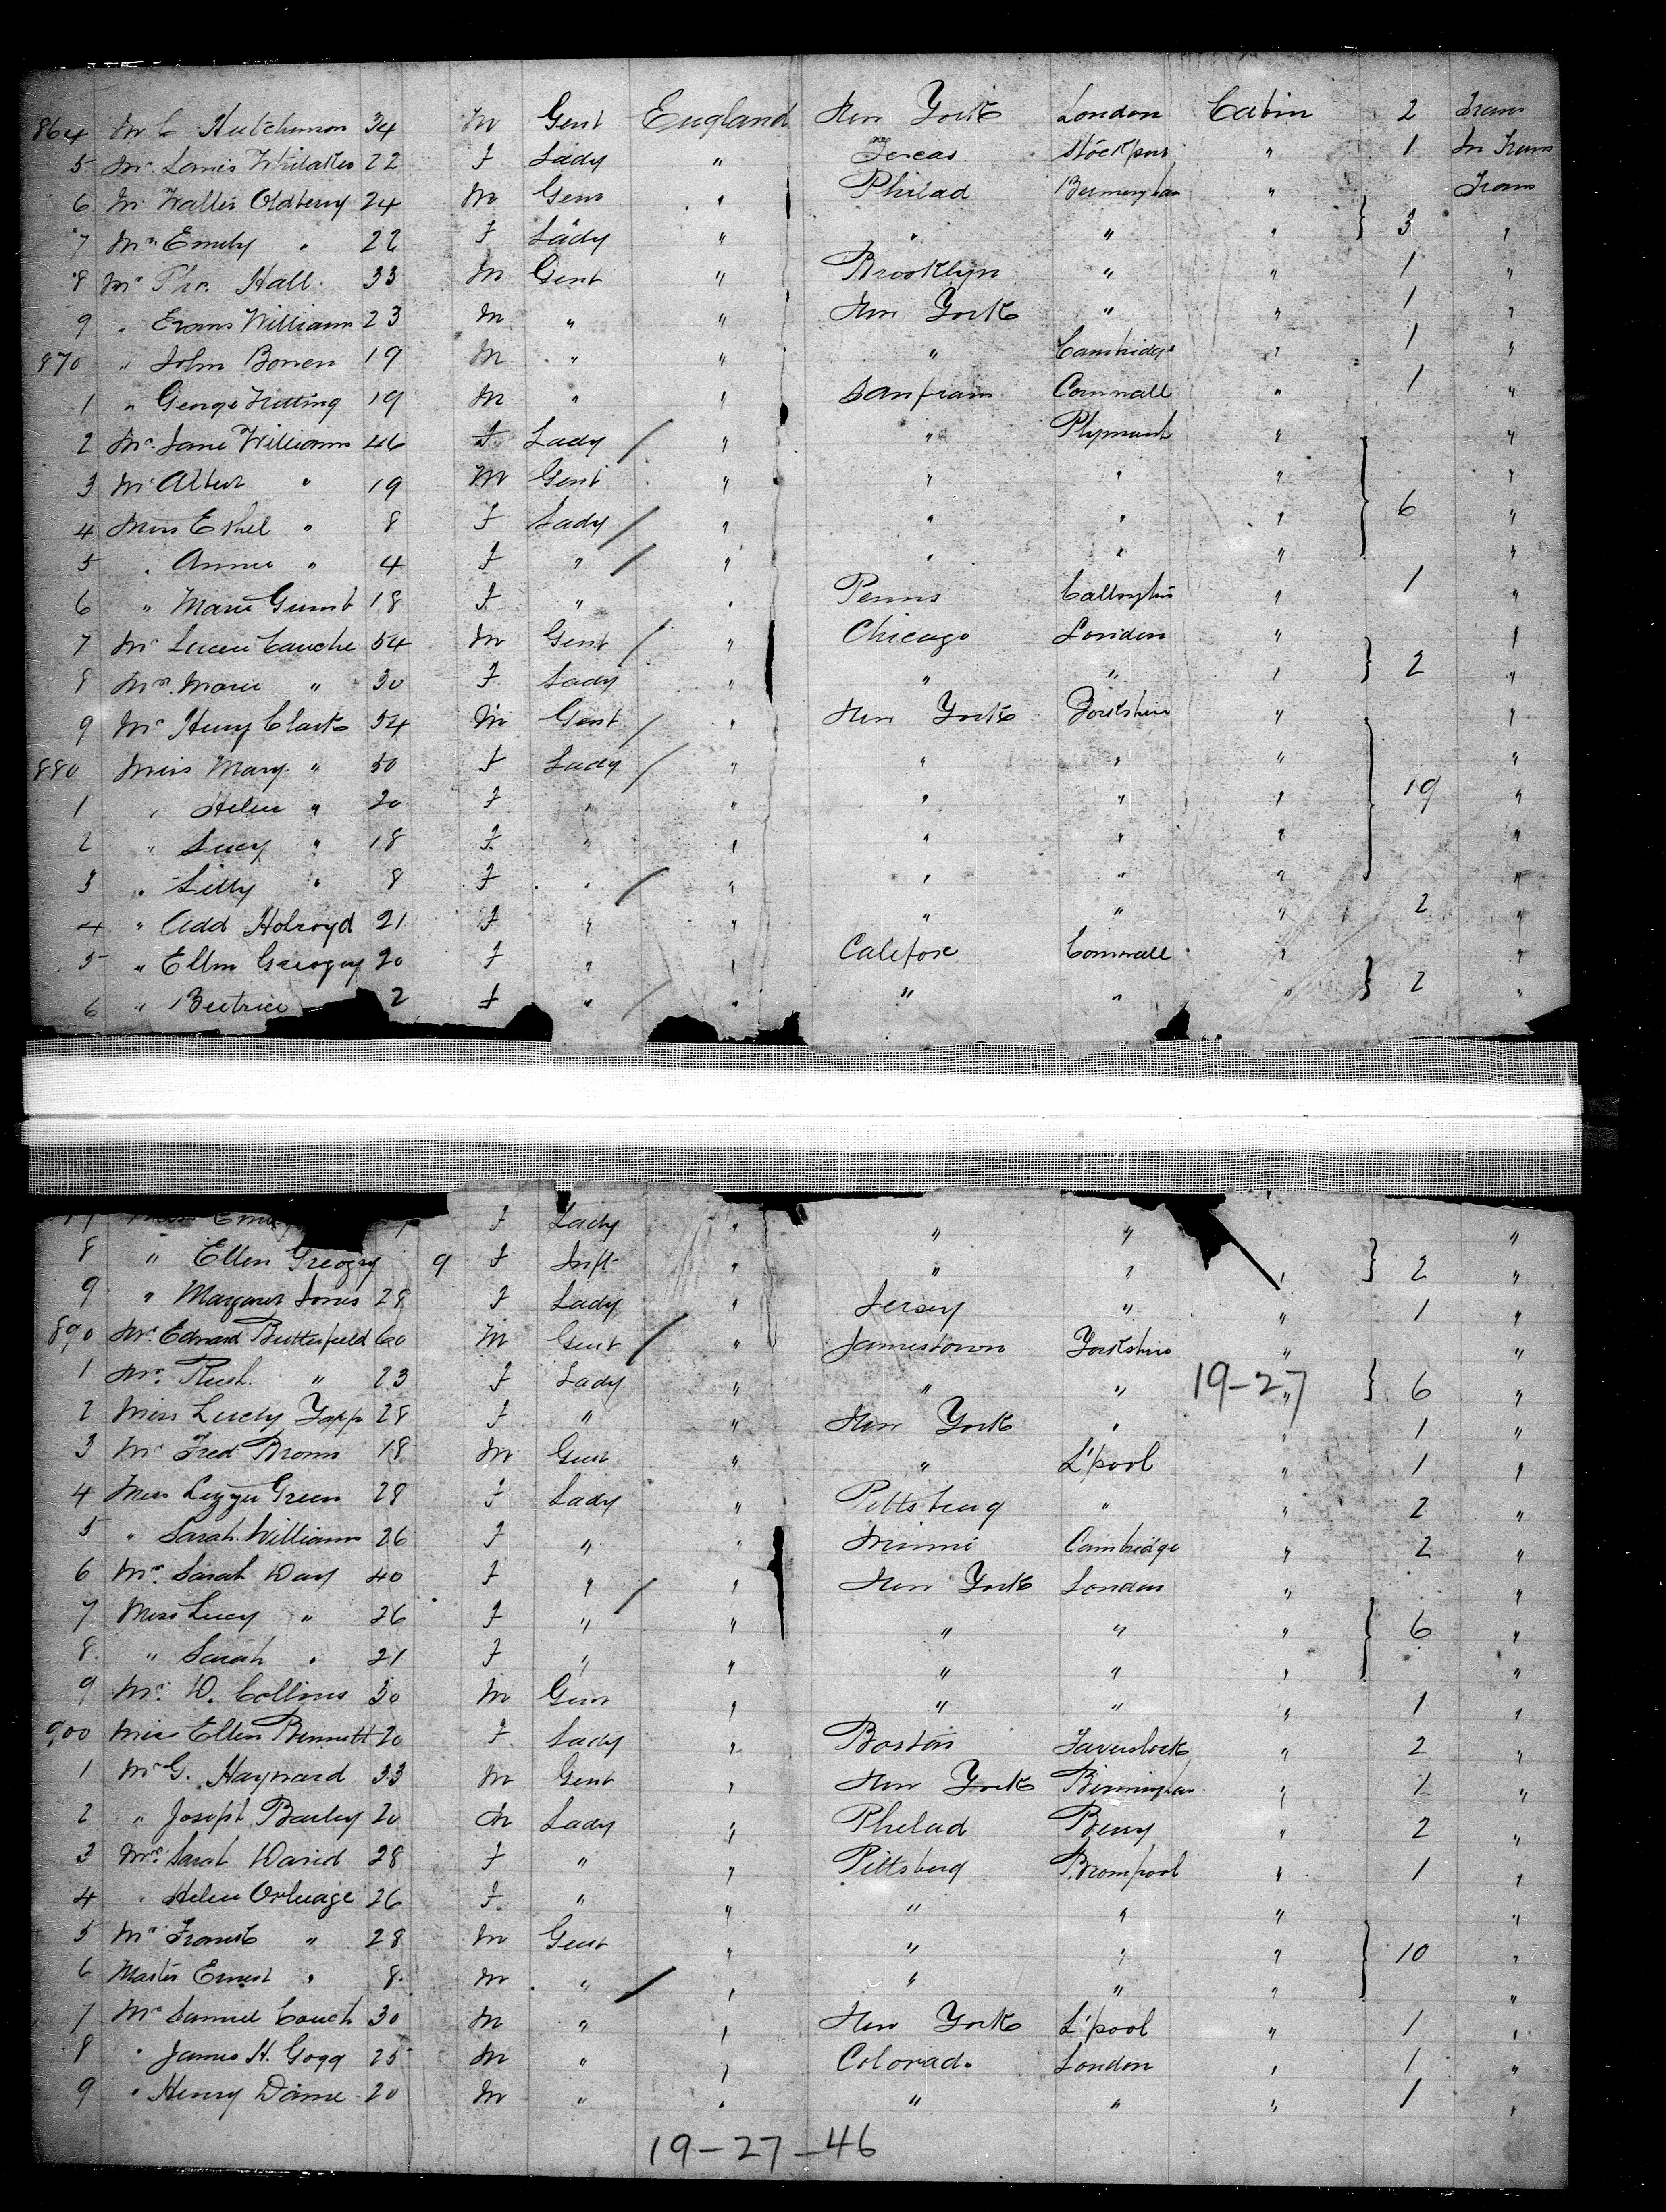 864 Mr C Hutchinson 34 M Gent England New York London Cabin 2 Trans
5 Mrs Whitaker 22 F Lady " Texas Stockport " 1 In Trans
6 Mr Walter Oldberry 24 M Gent " Philad Bermingham " Trans
7 Mrs Emily " 22 F Lady " " " " } 3 "
8 Mr Thos. Hall 33 M Gent " Brooklyn " " 1 "
9 " Evans William 23 M " " New York " " 1 "
870 " John Bowen 19 M " " " Cambridge " 1 "
1 " George 19 M " " Sanfran Cornwall " 1 "
2 Mrs Jane Williams 46 F Lady / " " Plymouth " "
3 Mr Albert " 19 M Gent " " " " "
4 Miss Ethel " 8 F Lady / " " " " } 6 "
5 " Annie " 4 F " / " " " " "
6 " Marie Gumb 18 F " " Penns " 1 "
7 Mr Lucien Cauche 54 M Gent / " Chicago London " "
8 Mrs. Marie " 30 F Lady " " " " } 2 "
9 Mr Henry Clark 54 M Gent / " New York Yorkshire " "
880 Miss Mary " 50 F Lady / " " " " "
1 " Helen " 20 F " " " " " } 19 "
2 " Lucy " 18 F " " " " " "
3 " Lilly " 8 F " / " " " " "
4 " Add Holroyd 21 F " " " " " 2 "
5 " Ellen Greogry 20 F " " Califor Cornwall " "
6 " Beetrice 2 F " / " " " " } 2 "
F Lady " " " "
8 " Ellen Greogry 9 F Inft " " " " } 2 "
9 " Margaret Jones 28 F Lady " Jersey " " 1 "
890 Mr. Edward Butterfield 60 M Gent / " Jamestown Yorkshire " "
1 Mrs. " 23 F Lady " " " 19-27 " } 6 "
2 Miss Lucly Yapp 28 F " " New York " " 1 "
3 Mr Fred Brown 18 M Gent " " L'pool " 1 "
4 Miss Lizzie Green 28 F Lady " Pittsburg " " 2 "
5 " Sarah Williams 26 F " " Minni Cambridge " 2 "
6 Mrs. Sarah Day 40 F " / " New York London " "
7 Miss Lucy " 26 F " " " " " } 6 "
8 " Sarah " 21 F " " " " " "
9 Mr. D. Collins 30 M Gent " " " " 1 "
900 Miss Ellen Bennett 20 F Lady " Boston " 2 "
1 Mr G. Hayward 33 M Gent " New York Birmingham " 1 "
2 " Joseph 20 M Lady " Phelad Beury " 2 "
3 Mrs. Sarah David 28 F " " Pittsburg " 1 "
4 " Helen 26 F " " " " " "
5 Mr Frank " 28 M Gent " " " " } 10 "
6 Master Ernest " 8 M " / " " " " "
7 Mr Samuel Couch 30 M " " New York L'pool " 1 "
8 " James H. Gogg 25 M " " Colorado London " 1 "
9 " Henry Dame 20 M " " " " " 1 "
19-27-46